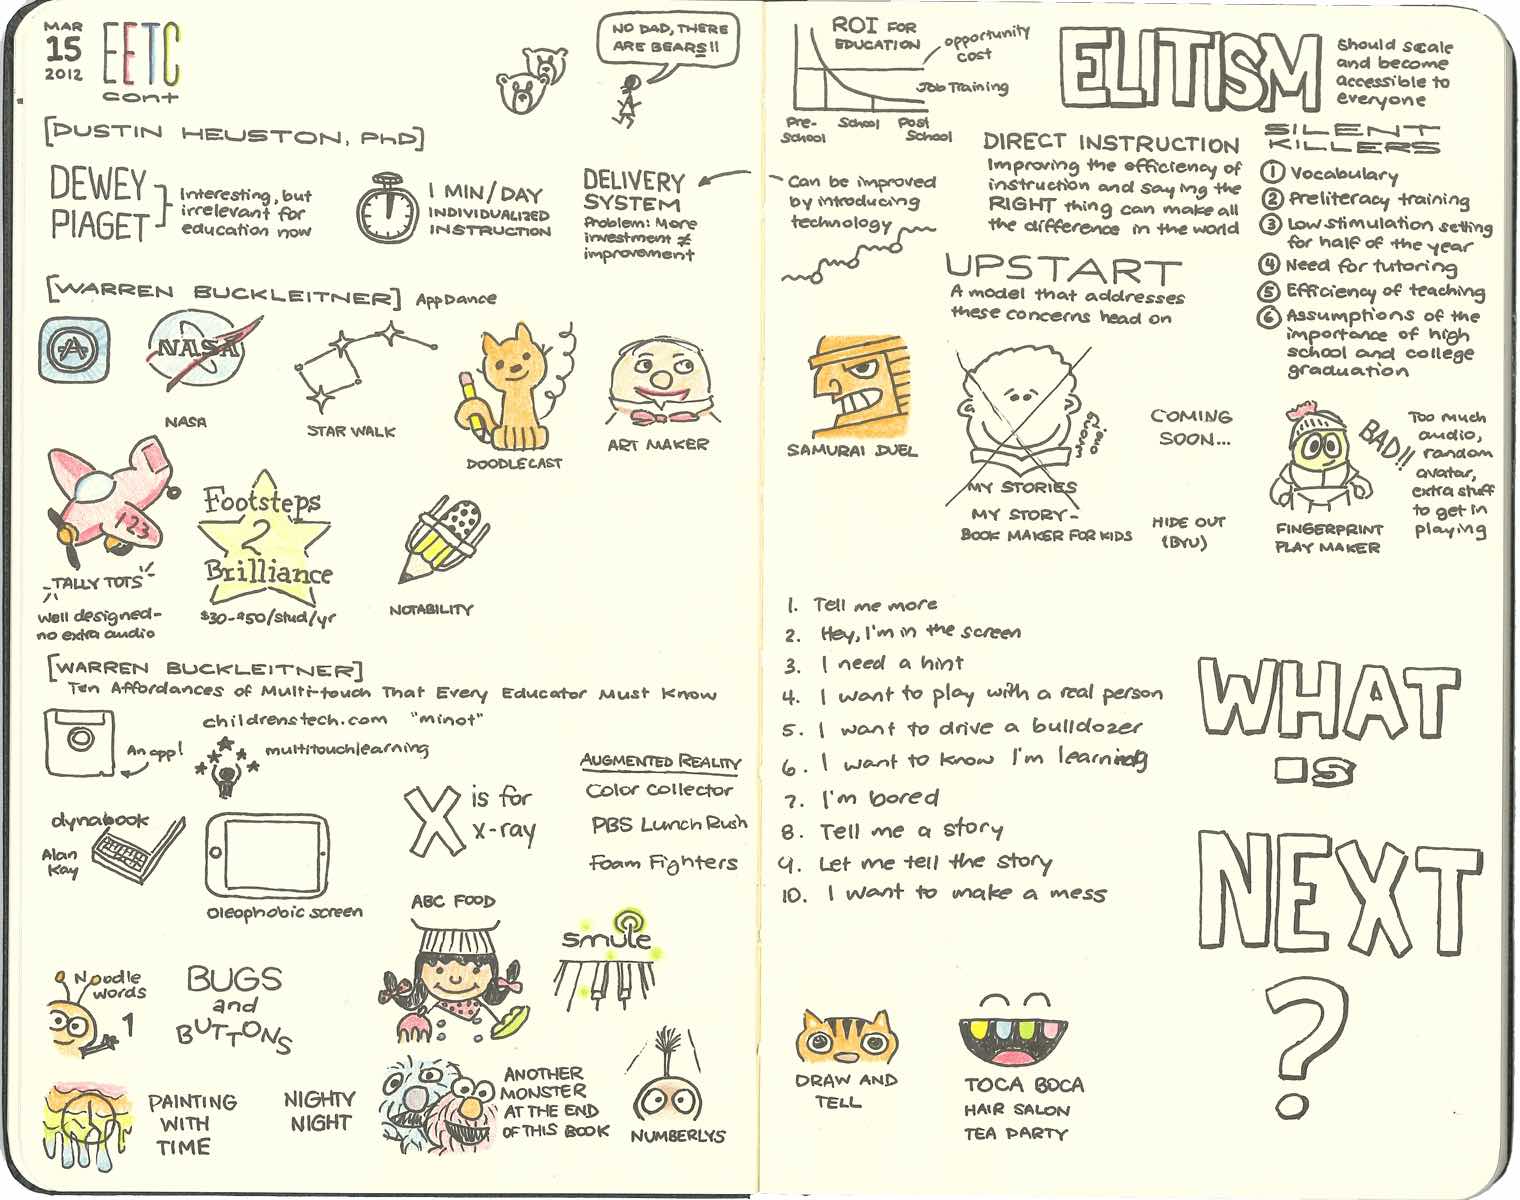 MAR
15
2012
EETC
cont
NO DAD, THERE
ARE BEARS!!
[DUSTIN HEUSTON, PhD]
DEWEY
PIAGET
Interesting, but
irrelevant for
education now
1 MIN/DAY
INDIVIDUALIZED
INSTRUCTION
DELIVERY
SYSTEM
Problem: More
investment ≠
improvement
[WARREN BUCKLEITNER] App Dance
NASA
NASA
STAR WALK
DOODLECAST
ART MAKER
123
TALLY TOTS
Well designed-
no extra audio
Footsteps
2
Brilliance
$30-$50/stud/yr
NOTABILITY
[WARREN BUCKLEITNER]
Ten Affordances of Multi-touch That Every Educator Must Know
childrenstech.com "minot"
An app!
multitouchlearning
dynabook
Alan
Kay
Oleophobic screen
X is for
x-ray
AUGMENTED REALITY
Color Collector
PBS Lunch Rush
Foam Fighters
ABC FOOD
smule
Noodle
words
1
BUGS
and
BUTTONS
PAINTING
WITH
TIME
NIGHTY
NIGHT
ANOTHER
MONSTER
AT THE END
OF THIS BOOK
NUMBERLYS
ROI FOR
EDUCATION
opportunity
cost
Job Training
Pre-
School
School
Post
School
ELITISM
Should scale
and become
accessible to
everyone
Can be improved
by introducing
technology
DIRECT INSTRUCTION
Improving the efficiency of
instruction and saying the
RIGHT thing can make all
the difference in the world
SILENT
KILLERS
1 Vocabulary
2 Preliteracy training
3 Low stimulation setting
for half of the year
4 Need for tutoring
5 Efficiency of teaching
6 Assumptions of the
importance of high
school and college
graduation
UPSTART
A model that addresses
these concerns head on
SAMURAI DUEL
wrong one!
MY STORIES
MY STORY-
BOOK MAKER FOR KIDS
COMING
SOON...
HIDE OUT
(BYU)
BAD!!
FINGERPRINT
PLAY MAKER
Too much
audio,
random
avatar,
extra stuff
to get in
playing
1. Tell me more
2. Hey, I'm in the screen
3. I need a hint
4. I want to play with a real person
5. I want to drive a bulldozer
6. I want to know I'm learning
7. I'm bored
8. Tell me a story
9. Let me tell the story
10. I want to make a mess
WHAT
IS
NEXT
?
DRAW AND
TELL
TOCA BOCA
HAIR SALON
TEA PARTY